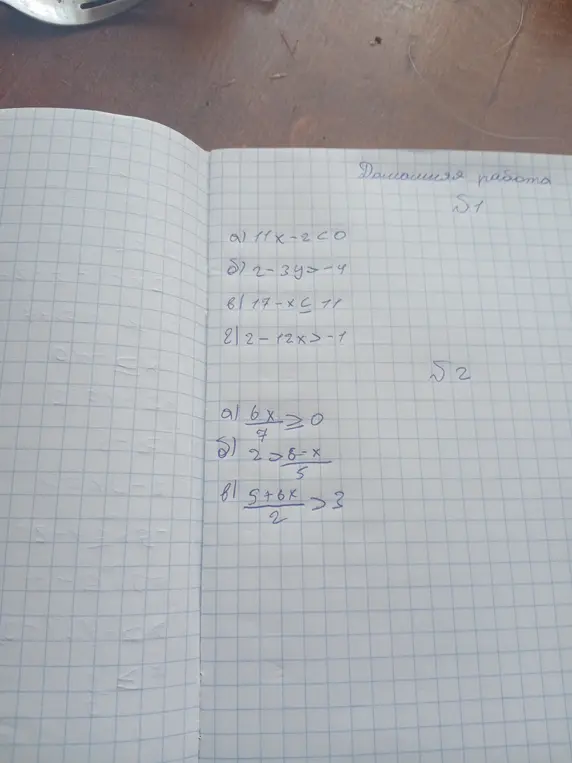 Домашняя работа
№1
а) 11x-2<0
б) 2-3y>-4
в) 17-x≤11
г) 2-12x>-1
№2
а) 6x/7 ≥ 0
б) 2>6-x/5
в) 5+6x/2 >3